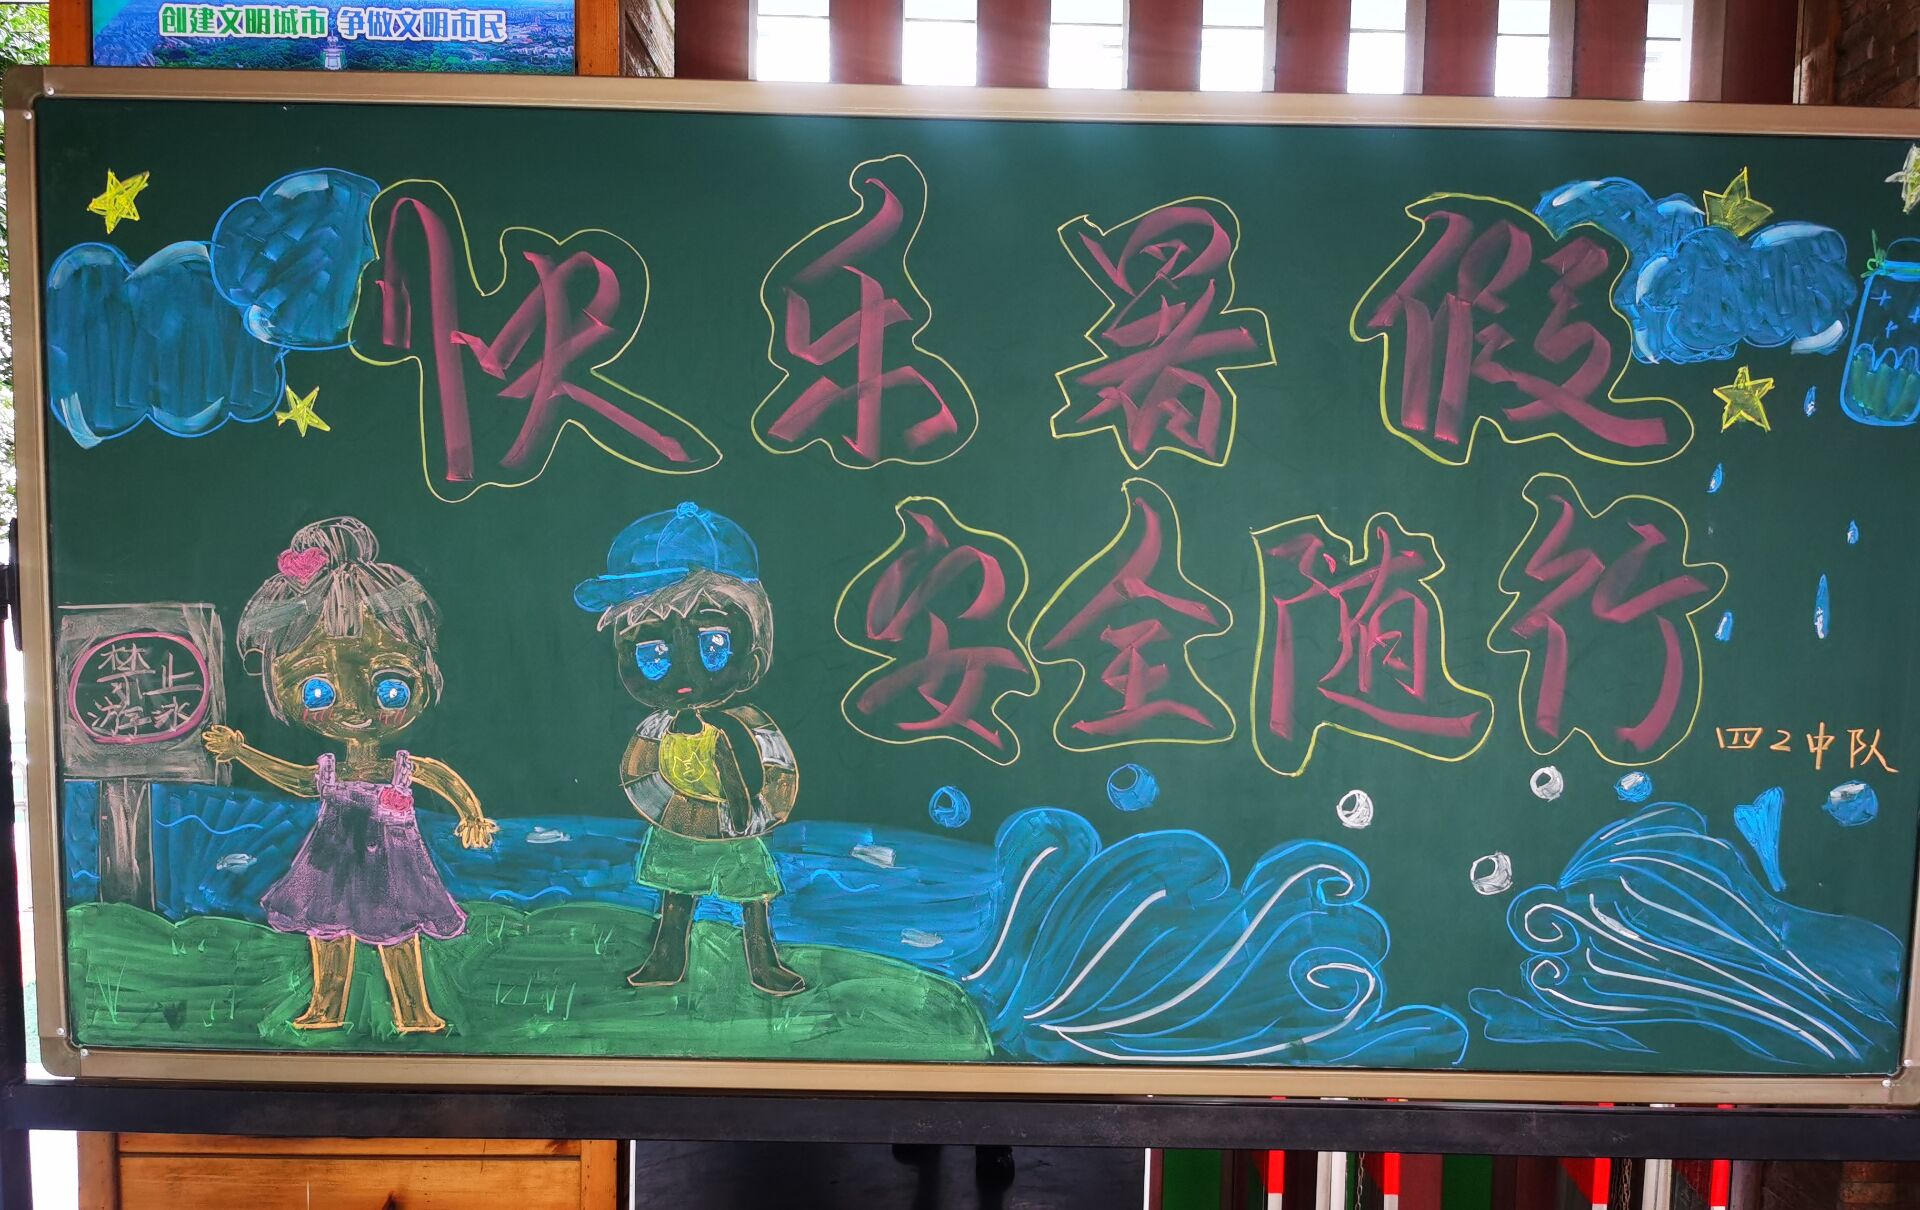 创建文明城市 争做文明市民
快乐暑假
安全随行
禁止
游泳
四2中队